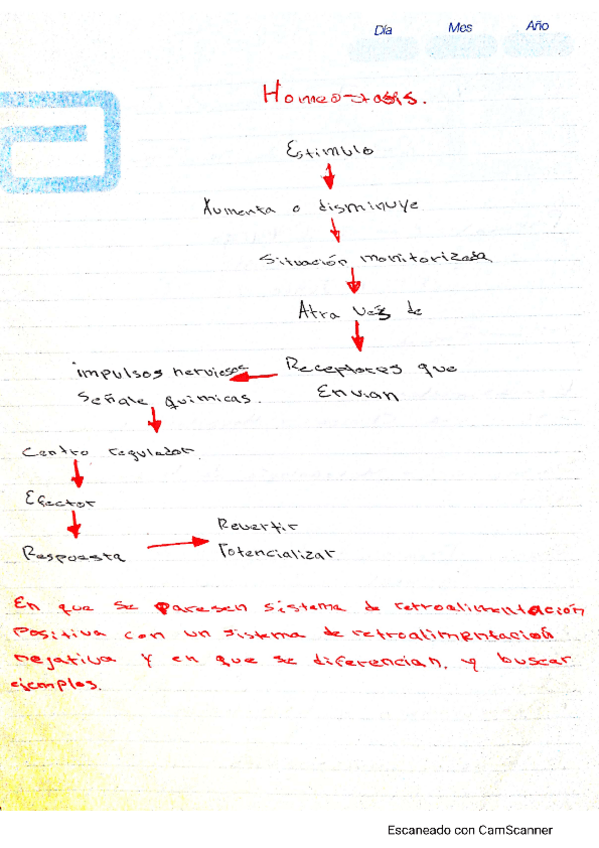 Día Mes Año
Homeostasis.
Estimulo
Aumenta o disminuye
Situación monitorizada
Atra vés de
impulsos nerviosos Receptores que
Señale quimicas. Envian
Centro regulador.
Efector
Revertir
Respuesta Potencializar
En que se paresen sistema de retroalimentación
positiva con un sistema de retroalimentación
negativa y en que se diferencian. y buscar
ejemplos.
Escaneado con CamScanner